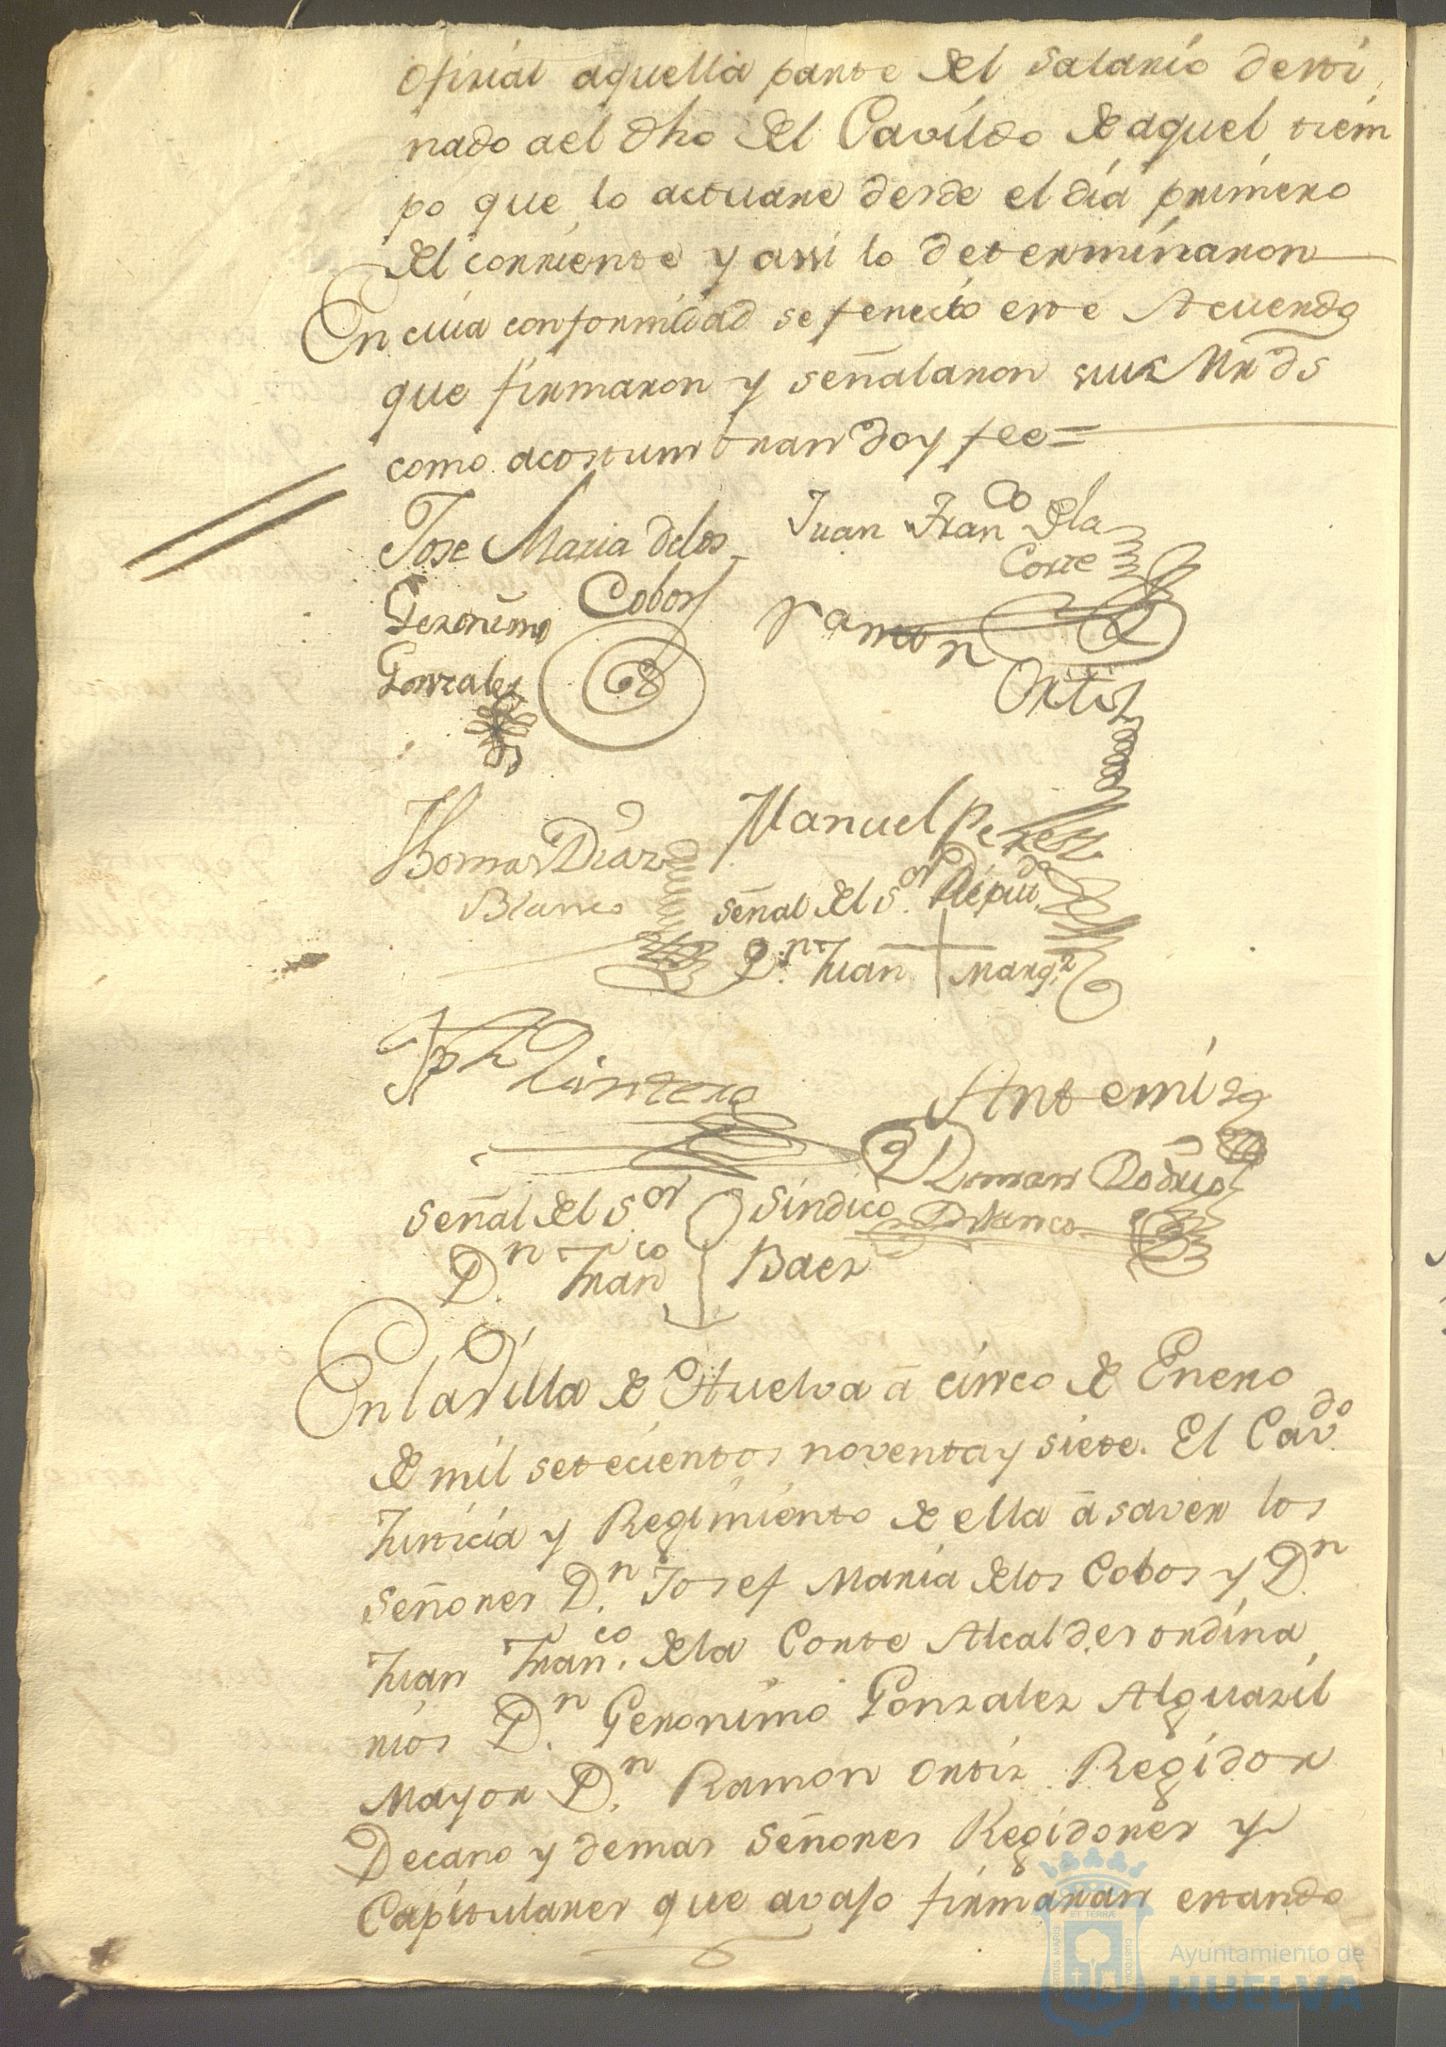 oficial aquella parte del salario desti
nado a el dho del Cavildo de aquel tiem
po que lo actuare desde el dia primero
del corriente y assi lo determinaron
En cuia conformidad se fenecio este Acuerdo
que firmaron y señalaron sus Mrds
como acostumbran doy fee=
Jose Maria delos Cobos
Juan Franco dela Corte
Geronimo Gonzales
Ramon Ortiz
Thomas Diaz Blanco
Manuel Perez
señal del Sor Diputdo
Dn Juan Marqz
Jph Quintero
Antemi
Roman Rodrigz Blanco
señal del Sor Sindico
Dn Franco Baez
En la Villa de Huelva a cinco de Enero
de mil setecientos noventa y siete. El Cavdo
Justicia y Regimiento de ella a saver los
señores Dn Josef Maria delos Cobos y Dn
Juan Franco dela Corte Alcaldes ordina
rios Dn Geronimo Gonzalez Alguazil
Mayor Dn Ramon Ortiz Regidor
Decano y demas señores Regidores y
Capitulares que avajo firmaran estando
Ayuntamiento de
HUELVA